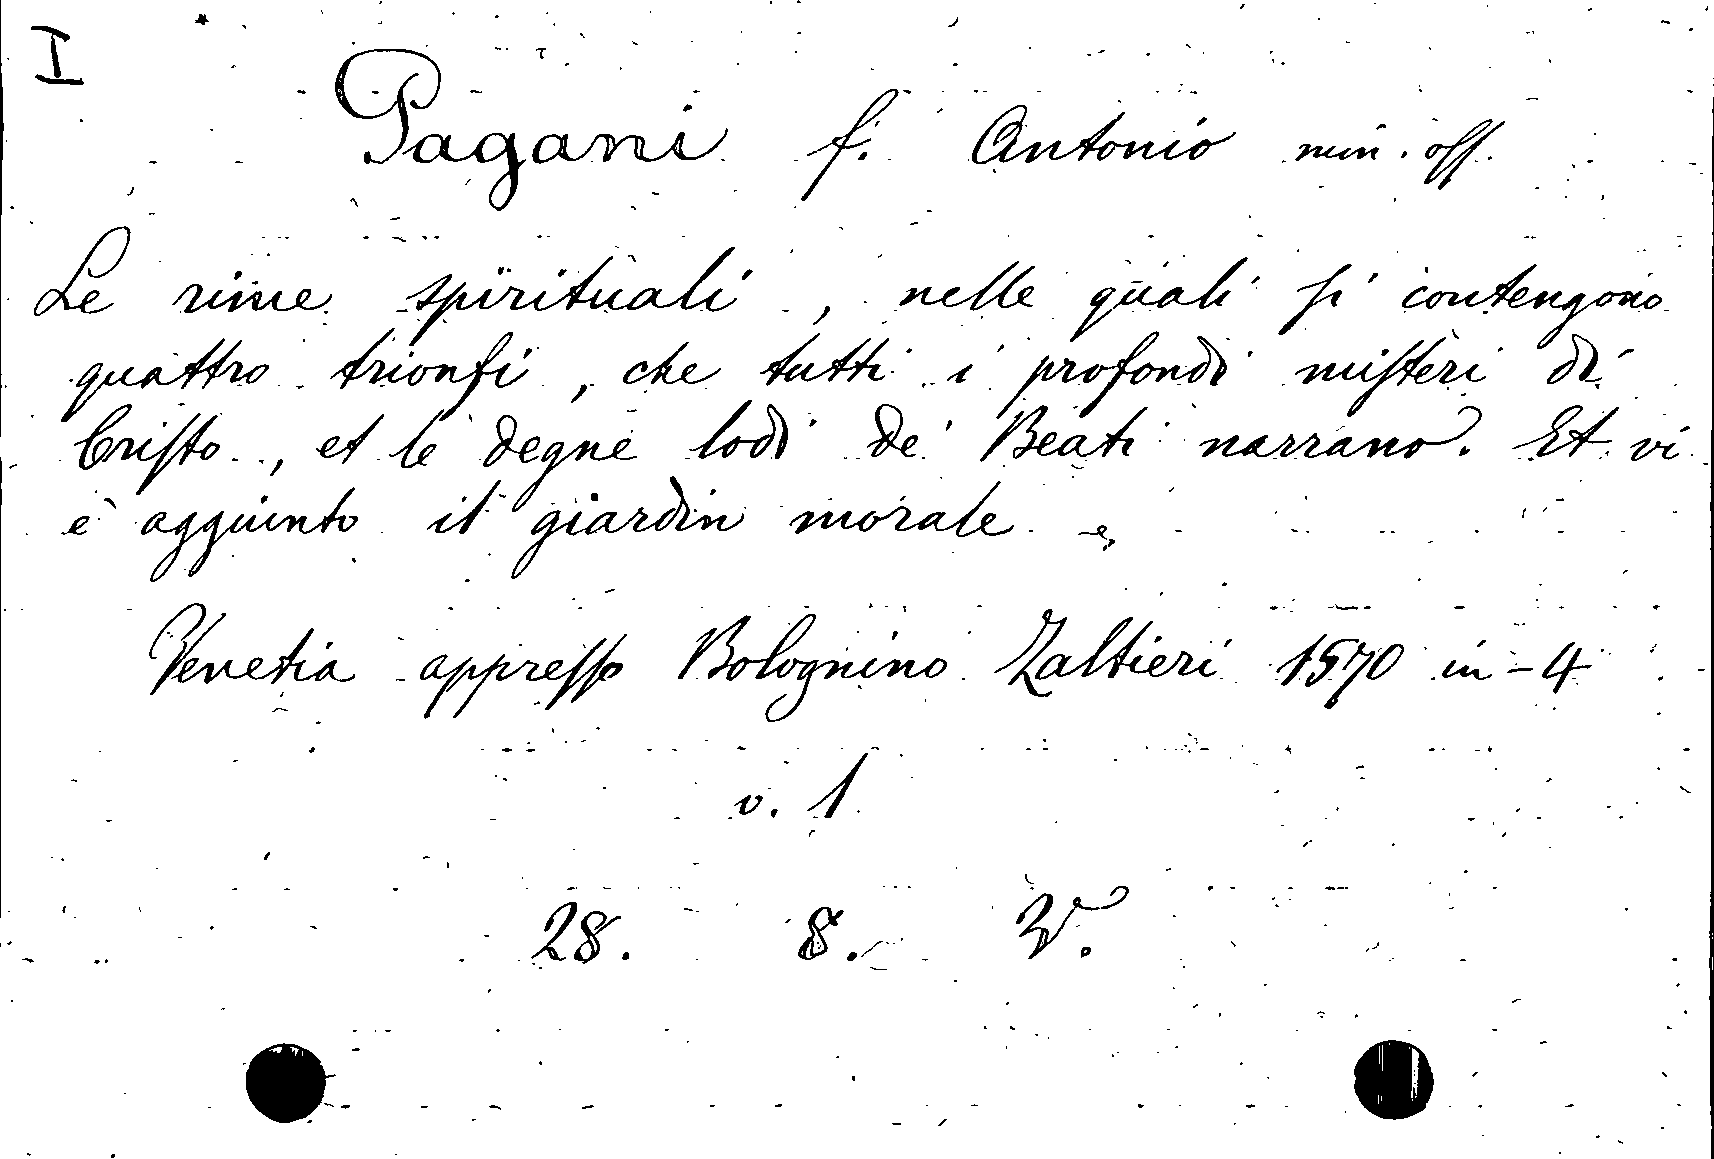 I
Pagani f. Antonio min. oss.
Le rime spirituali, nelle quali si contengono
quattro trionfi, che tutti i profondi misteri di
Cristo, et le degne lodi de' Beati narrano. Et vi
è aggiunto il giardin morale
Venetia appresso Bolognino Zaltieri 1570 in-4
v. 1
28. 8.